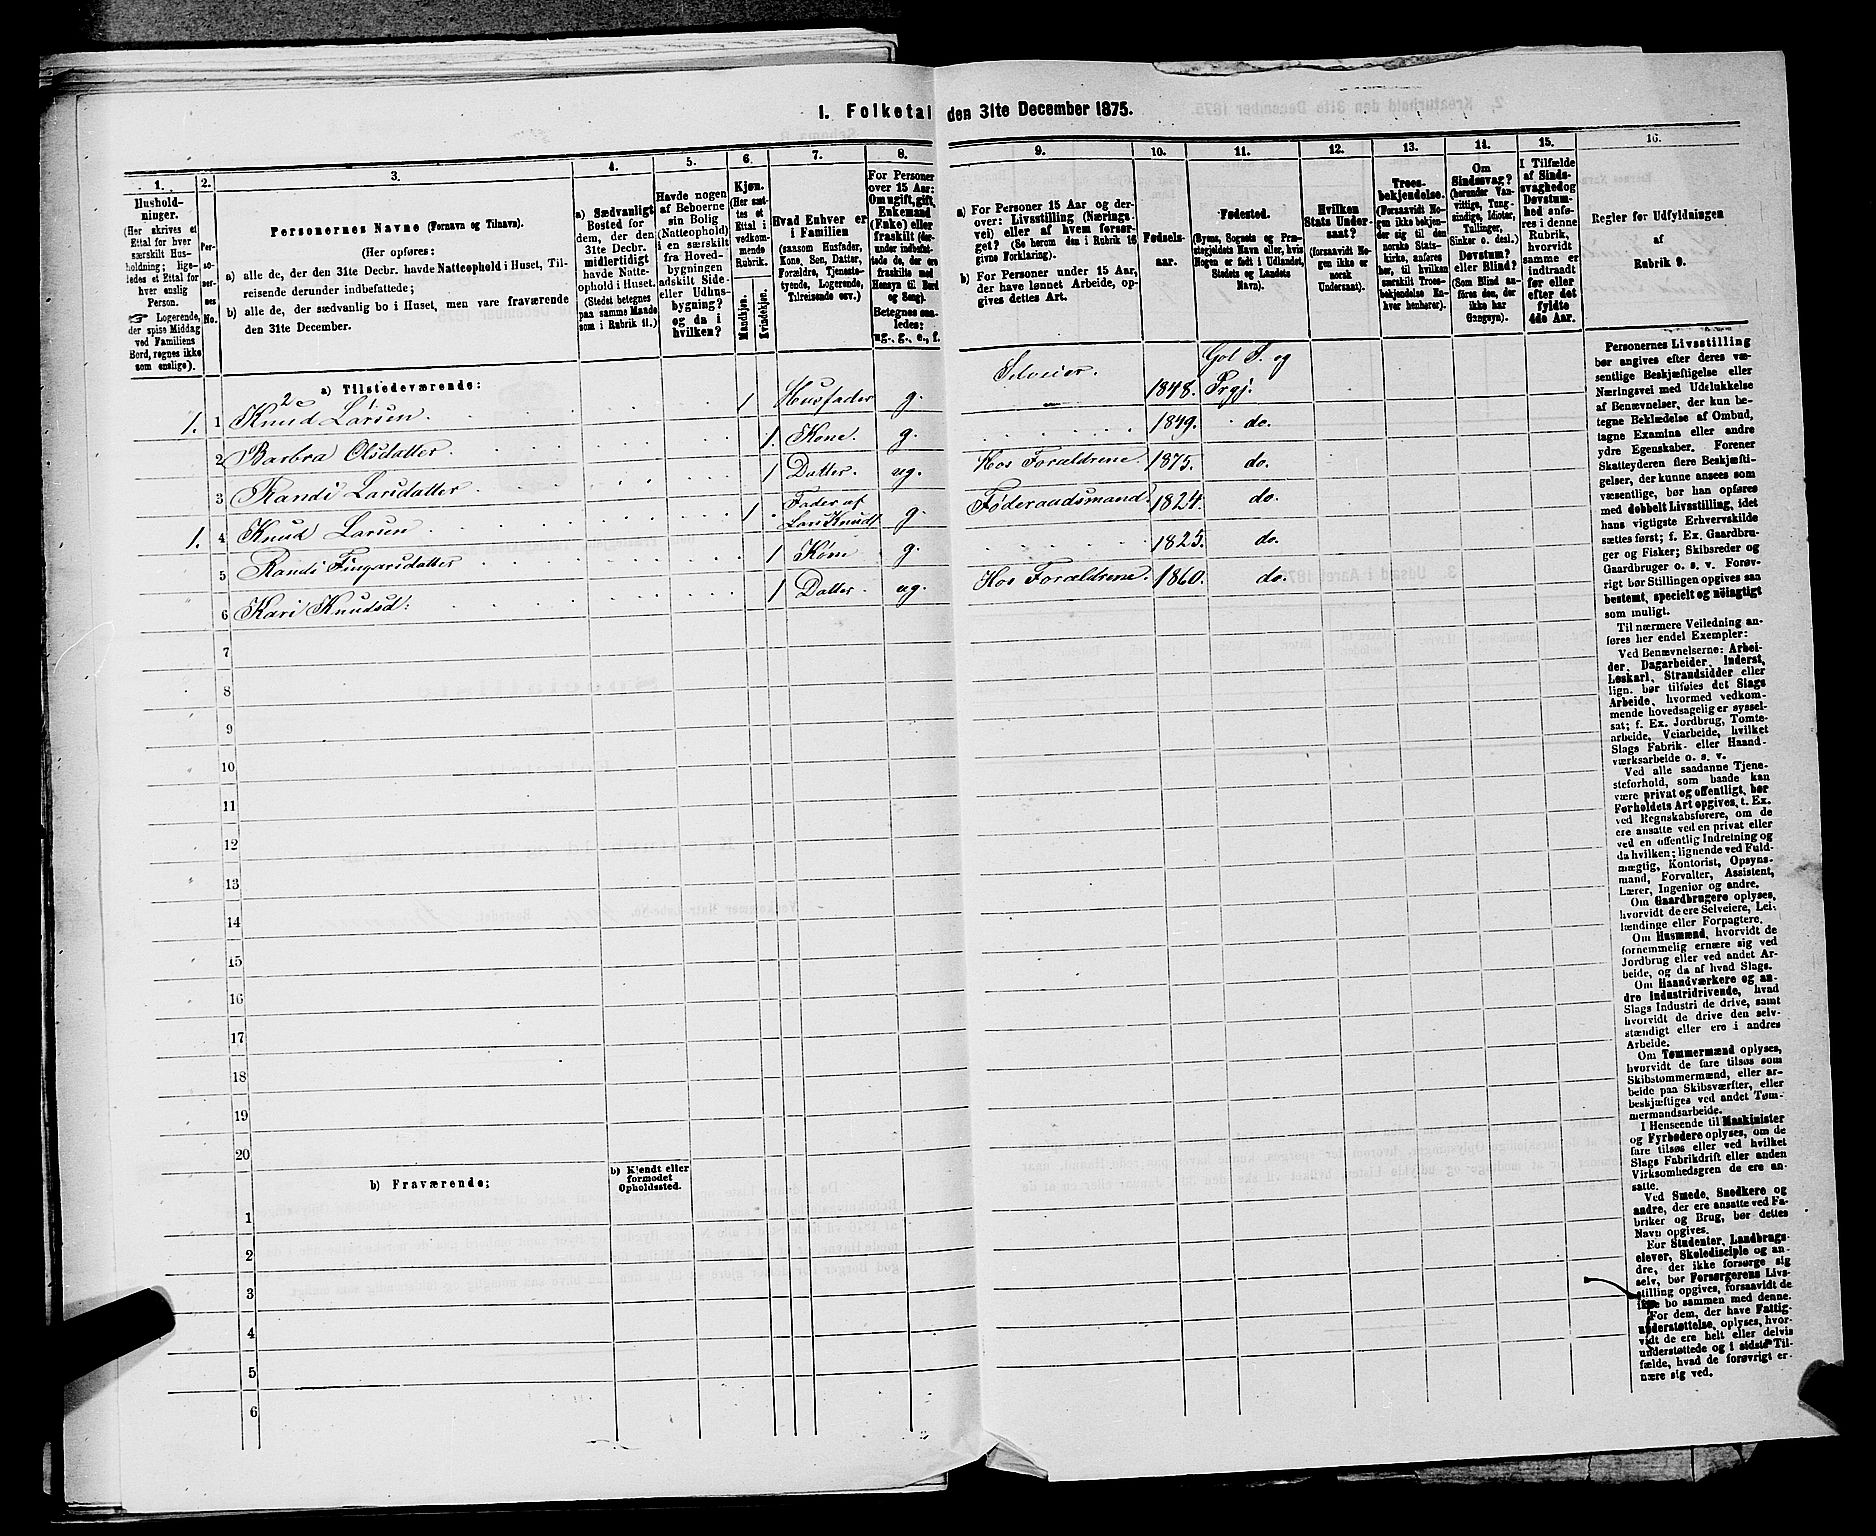 1. Folketal den 31te December 1875.
1. 2. 3. 4. 5. 6. 7. 8. 9. 10. 11. 12. 13. 14. 15. 16.
Hushold-
ninger.
(Her skrives et
Ettal for hver
særskilt Hus-
holdning; lige-
ledes et Ettal for
hver enslig
Person.
☞ Logerende,
der spise Middag
ved Familiens
Bord, regnes ikke
som enslige).
Per-
so-
ner-
nes
No.
Personernes Navne (Fornavn og Tilnavn).
(Her opføres:
a) alle de, der den 31te Decbr. havde Natteophold i Huset, Til-
reisende derunder indbefattede;
b) alle de, der sædvanlig bo i Huset, men vare fraværende
den 31te December.
a) Sædvanligt
Bosted for
dem, der den
31te Decbr.
midlertidigt
havde Natte-
ophold i Huset.
(Stedet betegnes
paa samme Maade
som i Rubrik 11.)
Havde nogen
af Beboerne
sin Bolig
(Natteophold)
i en særskilt
fra Hoved-
bygningen
adskilt Side-
eller Udhus-
bygning?
og da i
hvilken?
Kjøn.
(Her sæt-
tes et
Ettal i
vedkom-
mende
Rubrik.
Mandkjøn.
Kvindekjøn.
Hvad Enhver er
i Familien
(saasom Husfader,
Kone, Søn, Datter,
Forældre, Tjeneste-
tyende, Logerende,
Tilreisende osv.)
For Personer
over 15 Aar:
Om ugift, gift,
Enkemand
(Enke) eller
fraskilt (der-
under indbefat-
tede de, der ere
fraskilte med
Hensyn til Bord
og Seng).
Betegnes saa-
ledes:
ug., g., e., f.
a) For Personer 15 Aar og der-
over: Livsstilling (Nærings-
vei) eller af hvem forsør-
get? (Se herom den i Rubrik 16
givne Forklaring).
b) For Personer under 15 Aar,
der have lønnet Arbeide, op-
gives dettes Art.
Fødsels-
aar.
Fødested.
(Byens, Sognets og Præ-
stegjeldets Navn eller, hvis
Nogen er født i Udlandet,
Stedets og Landets
Navn).
Hvilken
Stats Under-
saat?
(forsaavidt No-
gen ikke er
norsk
Undersaat).
Troes-
bekjendelse.
(Forsaavidt No-
gen ikke bekjen-
der sig til den
norske Stats-
kirke, anføres
her, til hvilken
særskilt Troes-
bekjendelse En-
hver henhører).
Om
Sindssvag?
(herunder Van-
vittige, Tung-
sindige, Idioter,
Tullinger,
Sinker o. desl.)
Døvstum?
eller Blind?
(Som Blind an-
føres den, der
ikke har
Gangsyn).
I Tilfælde
af Sinds-
svaghed og
Døvstum-
hed anfø-
res i denne
Rubrik,
hvorvidt
samme er
indtraadt
før eller
efter det
fyldte
4de Aar.
Regler for Udfyldningen
af
Rubrik 9.
a) Tilstedeværende:
1. 1 Knud Larsen 1 Husfader g. Selveier 1848. Gol S. og Prgj.
2 Barbra Olsdatter 1. Kone. g. 1849. do.
3 Randi Larsdatter 1 Datter. ug. Hos Forældrene. 1875. do.
1. 4 Knud Larsen 1 Fader af Lars Knuds. g. Føderaadsmand. 1824. do.
5 Randi Fingarsdatter 1 Kone g. 1825. do.
6 Kari Knudsd: 1 Datter ug. Hos Forældrene. 1860. do.
7
8
9
10
11
12
13
14
15
16
17
18
19
20
b) Fraværende;
b) Kjendt eller
formodet
Opholdssted.
1
2
3
4
5
6
Personernes Livsstilling
bør angives efter deres væ-
sentlige Beskjæftigelse eller
Næringsvei med Udelukkelse
af Benævnelser, der kun be-
tegne Beklædelse af Ombud,
tagne Examina eller andre
ydre Egenskaber. Forener
Skatteyderen flere Beskjæfti-
gelser, der kunne ansees som
væsentlige, bør han opføres
med dobbelt Livsstilling, idet
hans vigtigste Erhvervskilde
sættes først; f. Ex. Gaardbru-
ger og Fisker; Skibsreder og
Gaardbruger o. s. v. Forøv-
rigt bør Stillingen opgives saa
bestemt, specielt og nøiagtigt
som muligt.
Til nærmere Veiledning an-
føres her endel Exempler:
Ved Benævnelserne: Arbei-
der, Dagarbeider, Inderst,
Løskarl, Strandsidder eller
lign. bør tilføies det Slags
Arbeide, hvormed vedkom-
mende hovedsagelig er syssel-
sat; f. Ex. Jordbrug, Tomte-
arbeide, Veiarbeide, hvilket
Slags Fabrik- eller Haand-
værksarbeide o. s. v.
Ved alle saadanne Tjene-
steforhold, som baade kan
være privat og offentligt, bør
Forholdets Art opgives, t. Ex.
ved Regnskabsførere, om de
ere ansatte ved en privat eller
ved en offentlig Indretning og
da hvilken; lignende ved Fuld-
mægtig, Kontorist, Opsyns-
mand, Forvalter, Assistent,
Lærer, Ingeniør og andre.
Om Gaardbrugere oplyses,
hvorvidt de ere Selveiere, Lei-
lændinge eller Forpagtere.
Om Husmænd, hvorvidt de
fornemmelig ernære sig ved
Jordbrug eller ved andet Ar-
beide, og da af hvad Slags.
Om Haandværkere og an-
dre Industridrivende, hvad
Slags Industri de drive, samt
hvorvidt de drive den selv-
stændigt eller ere i andres
Arbeide.
Om Tømmermænd oplyses,
hvorvidt de fare tilsøs som
Skibstømmermænd, eller ar-
beide paa Skibsværfter, eller
beskjæftiges ved andet Tøm-
mermandsarbeide.
I Henseende til Maskinister
og Fyrbødere oplyses, om de
fare tilsøs eller ved hvilket
Slags Fabrikdrift eller anden
Virksomhedsgren de ere an-
satte.
Ved Smede, Snedkere og
andre, der ere ansatte ved Fa-
briker og Brug, bør dettes
Navn opgives.
For Studenter, Landbrugs-
elever, Skoledisciple og an-
dre, der ikke forsørge sig
selv, bør Forsørgerens Livs-
stilling opgives, forsaavidt de
ikke bo sammen med denne.
For dem, der have Fattig-
understøttelse, oplyses, hvor-
vidt de ere helt eller delvis
understøttede og i sidste Til-
fælde, hvad de forøvrigt er-
nære sig ved.